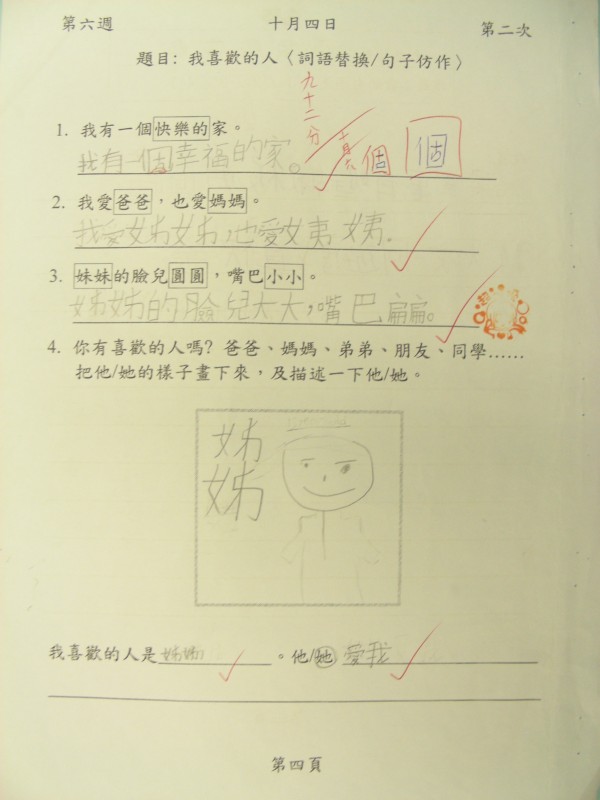 第六週 十月四日 第二次
題目：我喜歡的人〈詞語替換/句子仿作〉
九十二分
1. 我有一個快樂的家。
我有一個幸福的家。 個 個
2. 我愛爸爸，也愛媽媽。
我愛姊姊，也愛姨姨。
3. 妹妹的臉兒圓圓，嘴巴小小。
姊姊的臉兒大大，嘴巴扁扁。
4. 你有喜歡的人嗎？爸爸、媽媽、弟弟、朋友、同學……
把他/她的樣子畫下來，及描述一下他/她。
姊
姊
我喜歡的人是姊姊。他/她愛我
第四頁